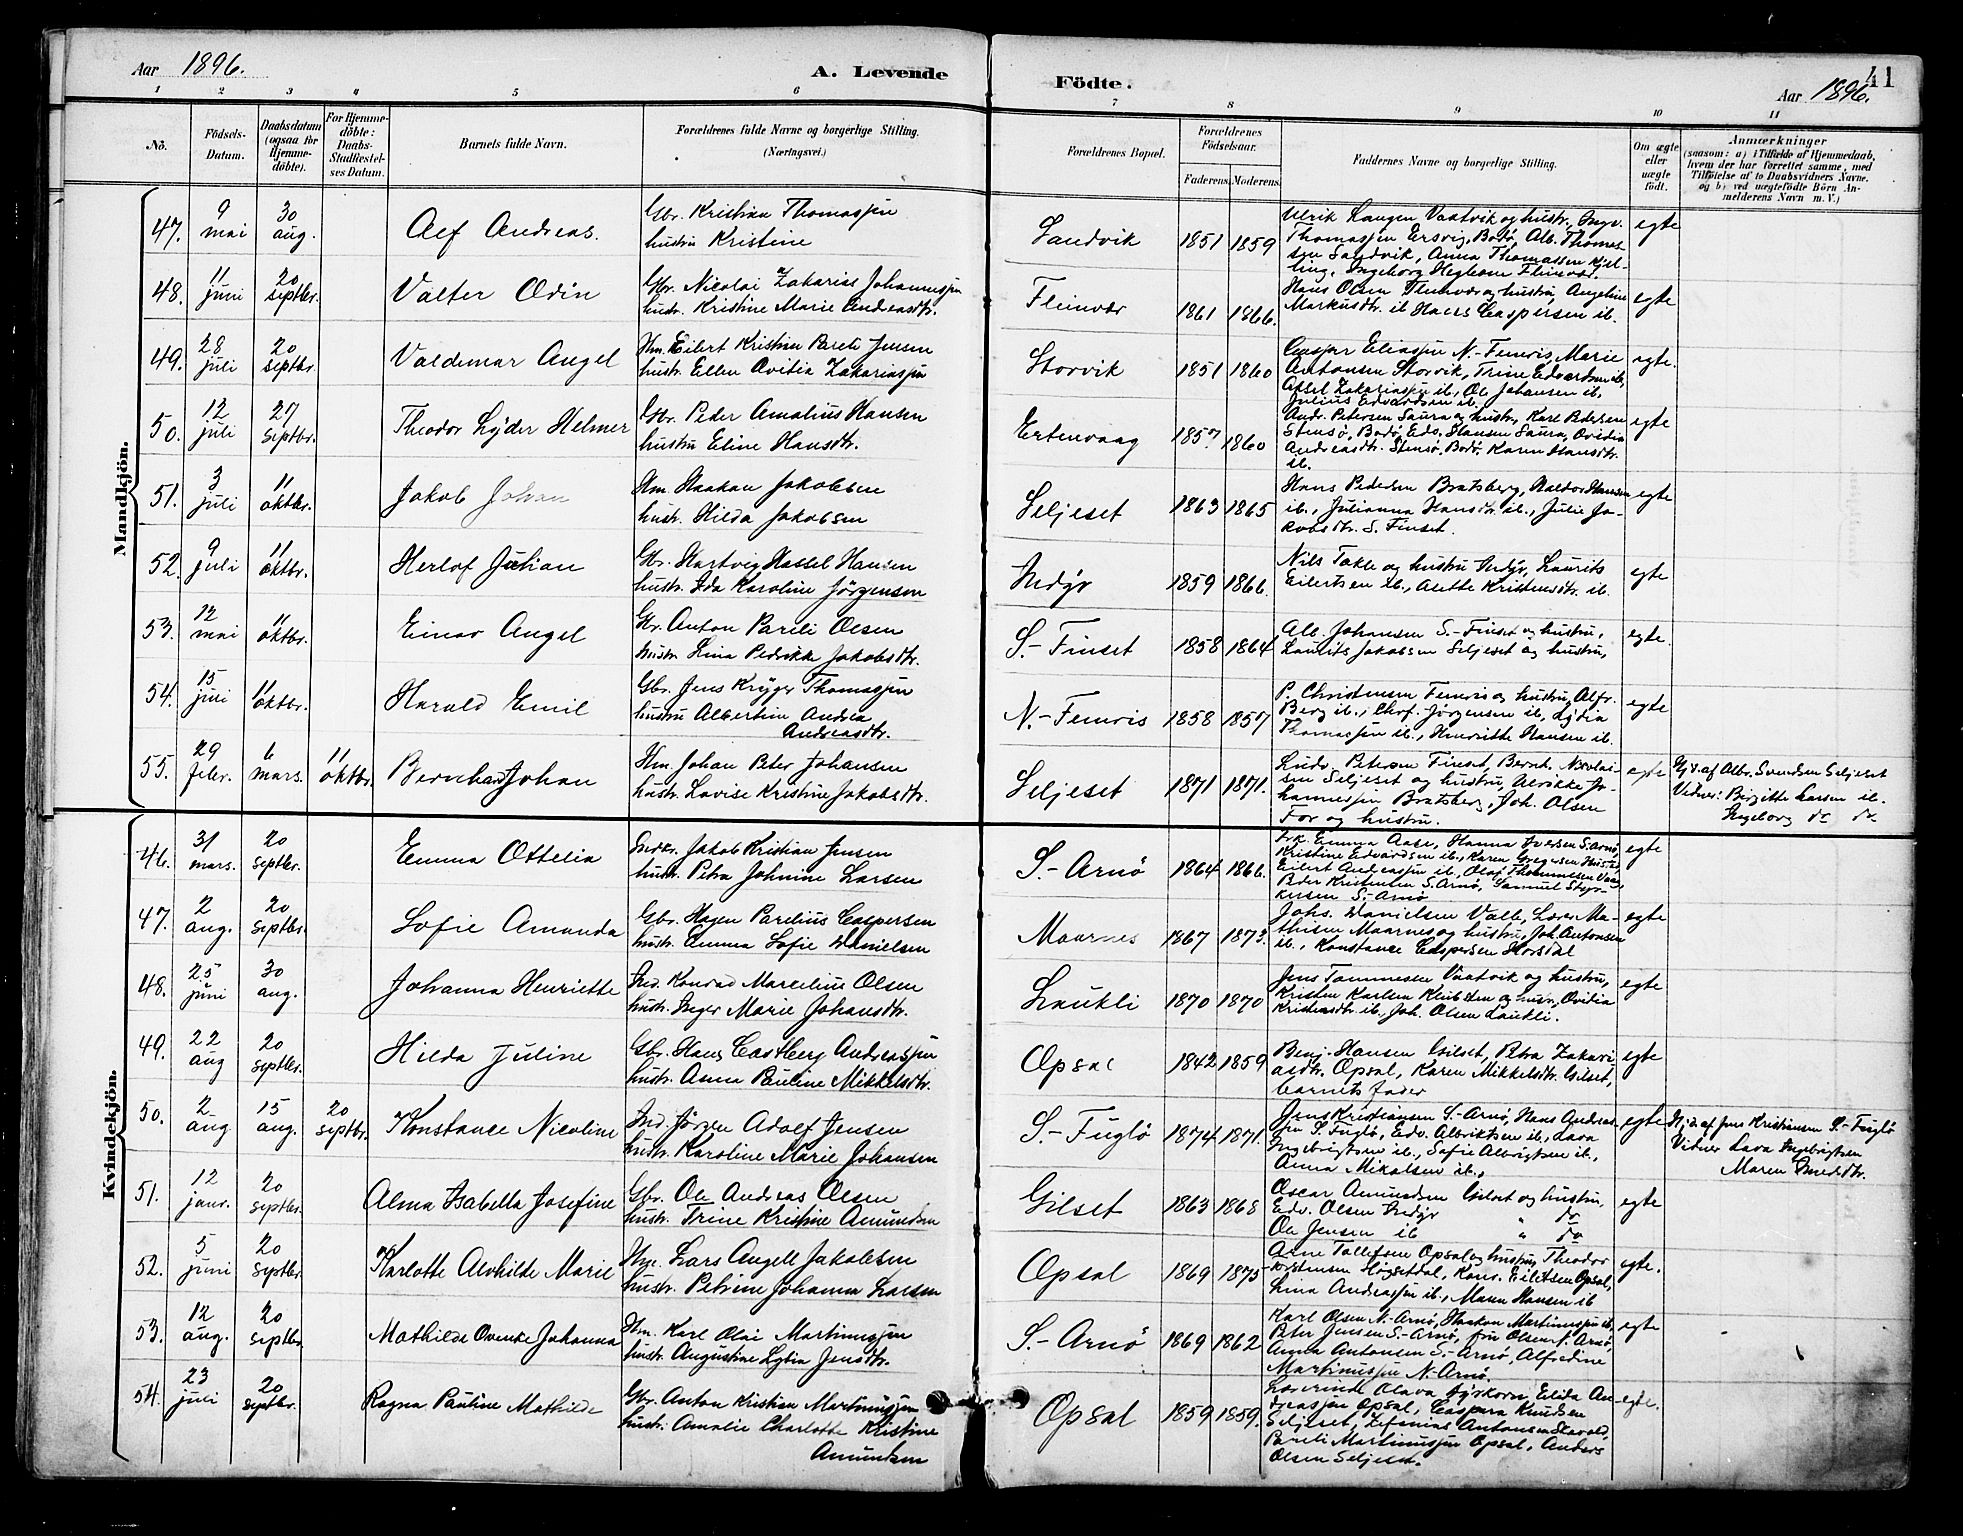 Aar 1896.
A. Levende
Födte.
41
Aar 1896.
1 2 3 4 5 6 7 8 9 10 11
No.
Födsels-
Datum.
Daabsdatum
(ogsaa for
Hjemme-
döbte).
For Hjemme-
döbte:
Daabs-
Stadfæstel-
ses Datum.
Barnets fulde Navn.
Forældrenes fulde Navne og borgerlige Stilling.
(Næringsvei.)
Forældrenes Bopæl.
Forældrenes
Födselsaar.
Faderens. Moderens.
Faddernes Navne og borgerlige Stilling.
Om ægte
eller
uægte
födt.
Anmærkninger
(saasom: a) i Tilfælde af Hjemmedaab,
hvem der har forrettet samme, med
Tilföielse af to Daabsvidners Navne.
og b) ved uægtefödte Börn An-
melderens Navn m. V.)
Mandkjön.
47. 9 mai 30 aug. Alf Andreas.
Gbr. Kristian Thomassen
hustru Kristine
Sandvik 1851 1859
egte
48. 11 juni 20 septbr. Valter Odin
Gbr. Nicolai Zakarias Johannessen
hustr. Kristine Marie Andreasdtr.
Fleinvær 1861 1866.
Hans Olsen Fleinvær og hustru, Angeline
Markusdtr. ib Hans Caspersen ib.
egte
49. 28 juli 20 septbr. Valdemar Angel
Hm. Eilert Kristian Pareli Jensen
hustr. Ellen Ovidia Zakariassen
Storvik 1851 1860
Caspar Eliassen N.-Femris, Marie
Antonsen Storvik, Trine Edvardsen ib,
Zakariassen ib., Ole Johansen ib,
Julius Edvardsen ib.
egte.
50. 12 juli 27 septbr. Theodor Lyder Helmer
Gbr. Peder Amalius Hansen
hustru Eline Hansdtr.
Ertenvaag 1857 1860
Andr. Petersen Saura og hustru, Karl Pedersen
Stensö, Bodö, Edv. Hansen Saura, Ovidia
Andreasdtr. Stensö, Bodö, Karen Hansdtr.
ib.
egte
51. 3 juli 11 oktbr. Jakob Johan
Hm. Haakon Jakobsen
hustr. Hilda Jakobsen
Seljeset 1863 1865
Hans Pedersen Bratsberg, Haldor Hansen
ib., Julianna Hansdtr. ib., Julie Ja-
kobsdtr. S. Finset.
egte
52. 9 juli 11 oktbr. Herlof Julian
Gbr. Hartvig Hassel Hansen
hustr. Ida Karoline Jörgensen
Indyr 1859 1866.
Nils Takle og hustru Indyr, Laurits
Eilertsen ib., Anette Kristensdtr. ib.
egte
53. 12 mai 11 oktbr. Einar Angel
Gbr. Anton Pareli Olsen
hustr. Lina Pedrikke Jakobsdtr.
S.-Finset 1858 1864
Alb. Johansen S.-Finset og hustru,
Laurits Jakobsen Seljeset og hustru,
egte.
54. 15 juli 11 oktbr. Harald Emil
Gbr. Jens Kryger Thomassen
hustru Albertine Andrea
Andreasdtr.
N.-Femris 1858 1857
P. Christensen Femris og hustru, Alfr.
Berg ib., Chrf. Jörgensen ib, Lydia
Thomassen ib., Henriette Hansen ib.
egte
55. 29 febr. 6 mars. 11 oktbr. Bernhard Johan
Hm. Johan Peter Johansen
hustr. Lovise Kristine Jakobsdtr.
Seljeset 1871 1871.
Ludv. Petersen Finset, Bernt. Nicolai-
sen Seljeset og hustru, Ulrikke Jo-
hannessen Bratsberg, Joh. Olsen
For og hustru.
egte
Hjd. af Albr. Svendsen Seljeset
Vidner: Birgitte Larsen ib.
Ingeborg do do
Kvindekjön.
46. 31 mars. 20 septbr. Emma Ottelia
Indr. Jakob Kristian Jensen
hustr. Petra Johnine Larsen
S.-Arnö 1864 1866.
Frk. Emma Aase, Hanna Iversen S. Arnö,
Kristine Edvardsen ib., Karen Gregersen
Eilert Andreassen ib., Olaf Thommessen
Peder Kristensen S. Arnö, Samuel Styr-
kersen S.-Arnö
egte
47. 2 aug. 20 septbr. Sofie Amanda
Gbr. Hagen Parelius Caspersen
hustr. Emma Sofie Danielsen
Maarnes 1867 1873.
Johs. Danielsen Valle, Lærer Ma-
thisen Maarnes og hustru, Joh. Antonsen
ib., Konstance Caspersen Horsdal
egte
48. 25 juni 30 aug. Johanna Henriette
Ind. Konrad Marcelius Olsen
hustr. Inger Marie Johansdtr.
Laukli 1870 1870
Jens Tommesen Vaatvik og hustru,
Kristen Karlsen og hustr., Ovidia
Kristensdtr. ib., Joh. Olsen Laukli.
egte
49. 22 aug 20 septbr. Hilda Juline
Gbr. Hans Castberg Andreassen
hustr. Anna Pauline Mikkelsdtr.
Opsal 1842 1859
Benj. Hansen Gilset, Petra Zakari-
asdtr. Opsal, Karen Mikkelsdtr. Gilset,
barnets fader
egte
50. 2 aug 15 aug. 20 septbr. Konstance Nicoline
Ind. Jörgen Adolf Jensen
hustr. Karoline Marie Johansen
S.-Fuglö 1874 1871.
Jens Kristiansen S.-Arnö, Hans Andreas-
sen S. Fuglö, Edv. Albriktsen ib., Lava
Ingebrigtsen ib., Sofie Albrigtsen ib.,
Anna Mikalsen ib.,
egte
Hjd af Jens Kristiansen S.-Fuglö
Vidner Lava Ingebrigtsen
Maren
51. 12 janr. 20 septbr. Alma Isabella Josefine
Gbr. Ole Andreas Olsen
hustr. Trine Kristine Amundsen
Gilset 1863 1868
Oscar Amundsen Gilset og hustru,
Edv. Olsen Indyr " do
Ole Jensen ib " do
egte
52. 5 juni 20 septbr. Karlotte Alvhilde Marie
Hm. Lars Angell Jakobsen
hustr. Petrine Johanna Larsen
Opsal 1869 1875
Arne Tollefsen Opsal og hustru, Theodor
Torstensen Högsetdal, Konr. Eilertsen Opsal,
Lina Andreassen ib., Maren Hansen ib
egte.
53. 12 aug. 20 septbr Mathilde Ovenke Johanna
Hm. Karl Olai Martinussen
hustr. Augustine Lydia Jensdtr.
S.-Arnö 1869 1862
Karl Olsen N.-Arnö, Haakon Martinussen ib,
Peter Jensen S.-Arnö, fru Olsen N. Arnö,
Anna Antonsen S.-Arnö, Alfredine
Martinussen N.-Arnö.
egte
54. 23 juli 20 septbr. Ragna Pauline Mathilde
Gbr. Anton Kristian Martinussen
hustr. Amalie Charlotte Kristine
Amundsen
Opsal 1859 1859.
Lærerinde Olava Fyskorn, Elida An-
dreassen Opsal, Caspara Knudsen
Seljeset, Zefanias Antonsen
Pareli Martinussen Opsal, Anders
Olsen Seljeset.
egte.